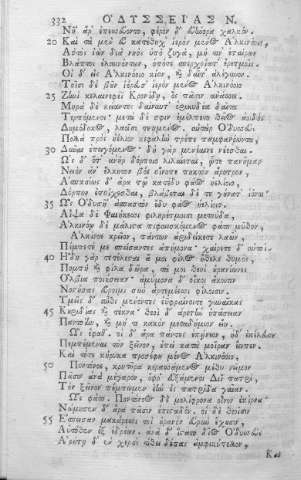 332 ὈΔΥΣΣΕΊΑΣ Ν.
Νῆα δ' ἐπεσσεύοντο, φέρον δ' εὐήνορα χαλκόν.
20 Καὶ τὰ μὲν εὖ κατέθηχ' ἱερὸν μένος Ἀλκινόοιο,
Αὐτὸς ἰὼν διὰ νηὸς ὑπὸ ζυγὰ, μή τιν' ἑταίρων
Βλάπτοι ἐλαυνόντων, ὁπότε σπερχοίατ' ἐρετμοῖς.
Οἱ δ' εἰς Ἀλκινόοιο κίον, καὶ δαῖτ' ἀλέγυνον.
Τοῖσι δὲ βοῦν ἱέρευσ' ἱερὸν μένος Ἀλκινόοιο
25 Ζηνὶ κελαινεφέϊ Κρονίδῃ, ὃς πᾶσιν ἀνάσσει.
Μηρὰ δὲ κείαντες δαίνυντ' ἐρικυδέα δαῖτα
Τερπόμενοι· μετὰ δέ σφιν ἐμέλπετο θεῖος ἀοιδὸς
Δημόδοκος, λαοῖσι τετιμένος. αὐτὰρ Ὀδυσσεὺς
Πολλὰ πρὸς ἠέλιον κεφαλὴν τρέπε παμφανόωντα,
30 Δῦναι ἐπειγόμενος· δὴ γὰρ μενέαινε νέεσθαι.
Ὡς δ' ὅτ' ἀνὴρ δόρποιο λιλαίεται, ᾧτε πανῆμαρ
Νειὸν ἀν' ἕλκητον βόε οἴνοπε πηκτὸν ἄροτρον,
Ἀσπασίως δ' ἄρα τῷ κατέδυ φάος ἠελίοιο,
Δόρπον ἐποίχεσθαι, βλάβεται δέ τε γούνατ' ἰόντι·
35 Ὣς Ὀδυσῆ' ἀσπαστὸν ἔδυ φάος ἠελίοιο.
Αἶψα δὲ Φαιήκεσσι φιληρέτμοισι μετηύδα,
Ἀλκινόῳ δὲ μάλιστα πιφαυσκόμενος φάτο μῦθον,
Ἀλκίνοε κρεῖον, πάντων ἀριδείκετε λαῶν,
Πέμπετέ με σπείσαντες ἀπήμονα· χαίρετε δ' αὐτοί.
40 Ἤδη γὰρ τετέλεσται ἅ μοι φίλος ἤθελε θυμὸς,
Πομπὴ καὶ φίλα δῶρα, τά μοι θεοὶ Οὐρανίωνες
Ὄλβια ποιήσειαν· ἀμύμονα δ' οἴκοι ἄκοιτιν
Νοστήσας εὕροιμι σὺν ἀρτεμέεσσι φίλοισιν.
Ὑμεῖς δ' αὖθι μένοντες ἐϋφραίνοιτε γυναῖκας
45 Κουριδίας καὶ τέκνα· θεοὶ δ' ἀρετὴν ὀπάσειαν
Παντοίην, καὶ μή τι κακὸν μεταδήμιον εἴη.
Ὣς ἔφαθ'. οἱ δ' ἄρα πάντες ἐπῄνεον, ἠδ' ἐκέλευον
Πεμπέμεναι τὸν ξεῖνον, ἐπεὶ κατὰ μοῖραν ἔειπεν.
Καὶ τότε κήρυκα προσέφη μένος Ἀλκινόοιο·
50 Ποντόνοε, κρητῆρα κερασσάμενος μέθυ νεῖμον
Πᾶσιν ἀνὰ μέγαρον, ὄφρ' εὐξάμενοι Διῒ πατρὶ,
Τὸν ξεῖνον πέμπωμεν ἑὴν ἐς πατρίδα γαῖαν.
Ὣς φάτο. Ποντόνοος δὲ μελίφρονα οἶνον ἐκίρνα·
Νώμησεν δ' ἄρα πᾶσιν ἐπισταδόν. οἱ δὲ θεοῖσιν
55 Ἔσπεισαν μακάρεσσι τοὶ οὐρανὸν εὐρὺν ἔχουσιν,
Αὐτόθεν ἐξ ἑδρέων. ἀνὰ δ' ἵστατο δῖος Ὀδυσσεὺς
Ἀρήτῃ δ' ἐν χειρὶ τίθει δέπας ἀμφικύπελλον,
Καὶ